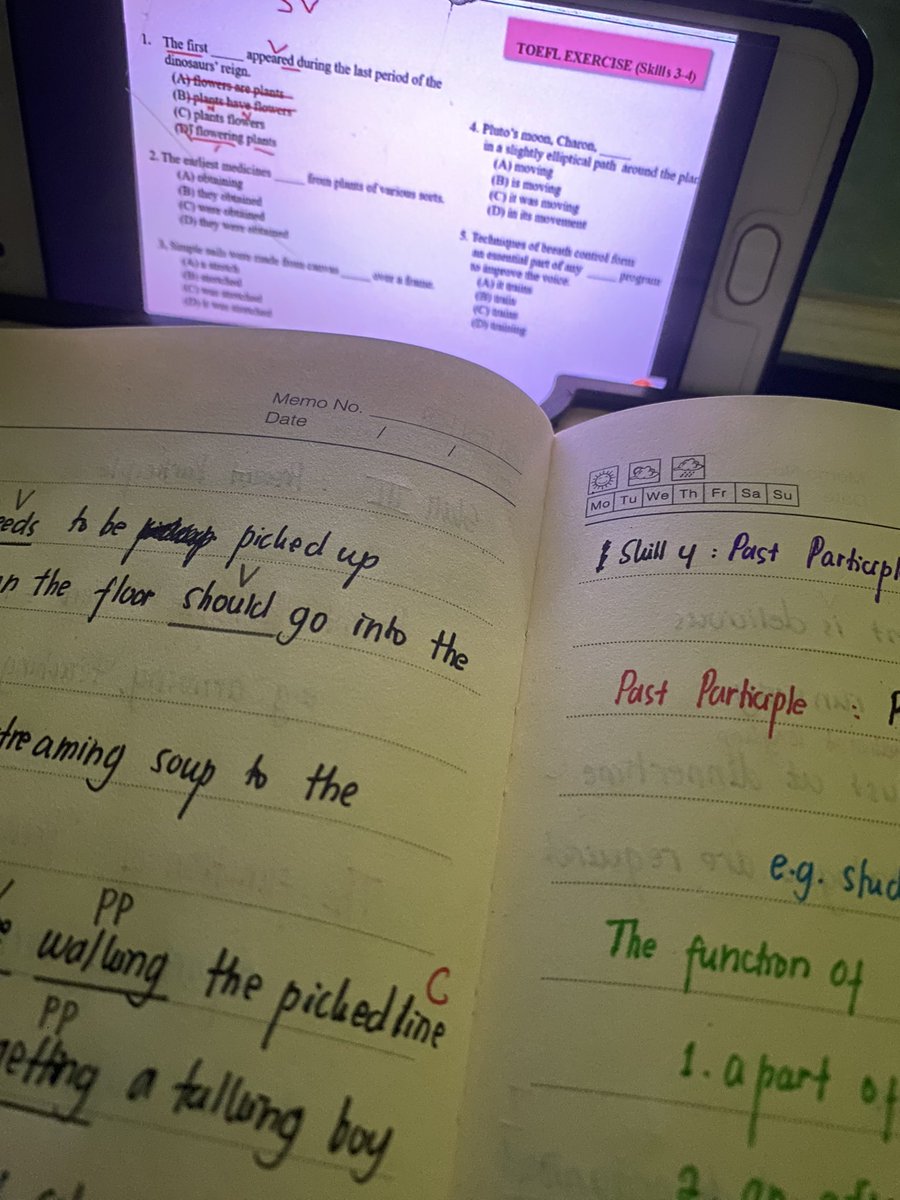 S V
TOEFL EXERCISE (Skills 3-4)
1. The first ______ appeared during the last period of the
V
dinosaurs' reign.
(A) flowers are plants
(B) plants have flowers
(C) plants flowers
(D) flowering plants
2. The earliest medicines ______ from plants of various sorts.
(A) obtaining
(B) they obtained
(C) were obtained
(D) they were obtained
3. Simple sails were made from canvas ______ over a frame.
(A) a stretch
(B) stretched
(C) was stretched
(D) it was stretched
4. Pluto's moon, Charon, ______
in a slightly elliptical path around the plan
(A) moving
(B) is moving
(C) it was moving
(D) in its movement
5. Techniques of breath control form
an essential part of any ______ program
to improve the voice.
(A) it trains
(B) train
(C) trains
(D) training
Memo No.
Date / /
V
eeds to be picked up
V
n the floor should go into the
treaming soup to the
PP
walking the picked line
C
PP
getting a talking boy
Mo Tu We Th Fr Sa Su
Skill 4 : Past Participl
Past Participle : P
e.g. stud
The function of
1. a part of
2. an